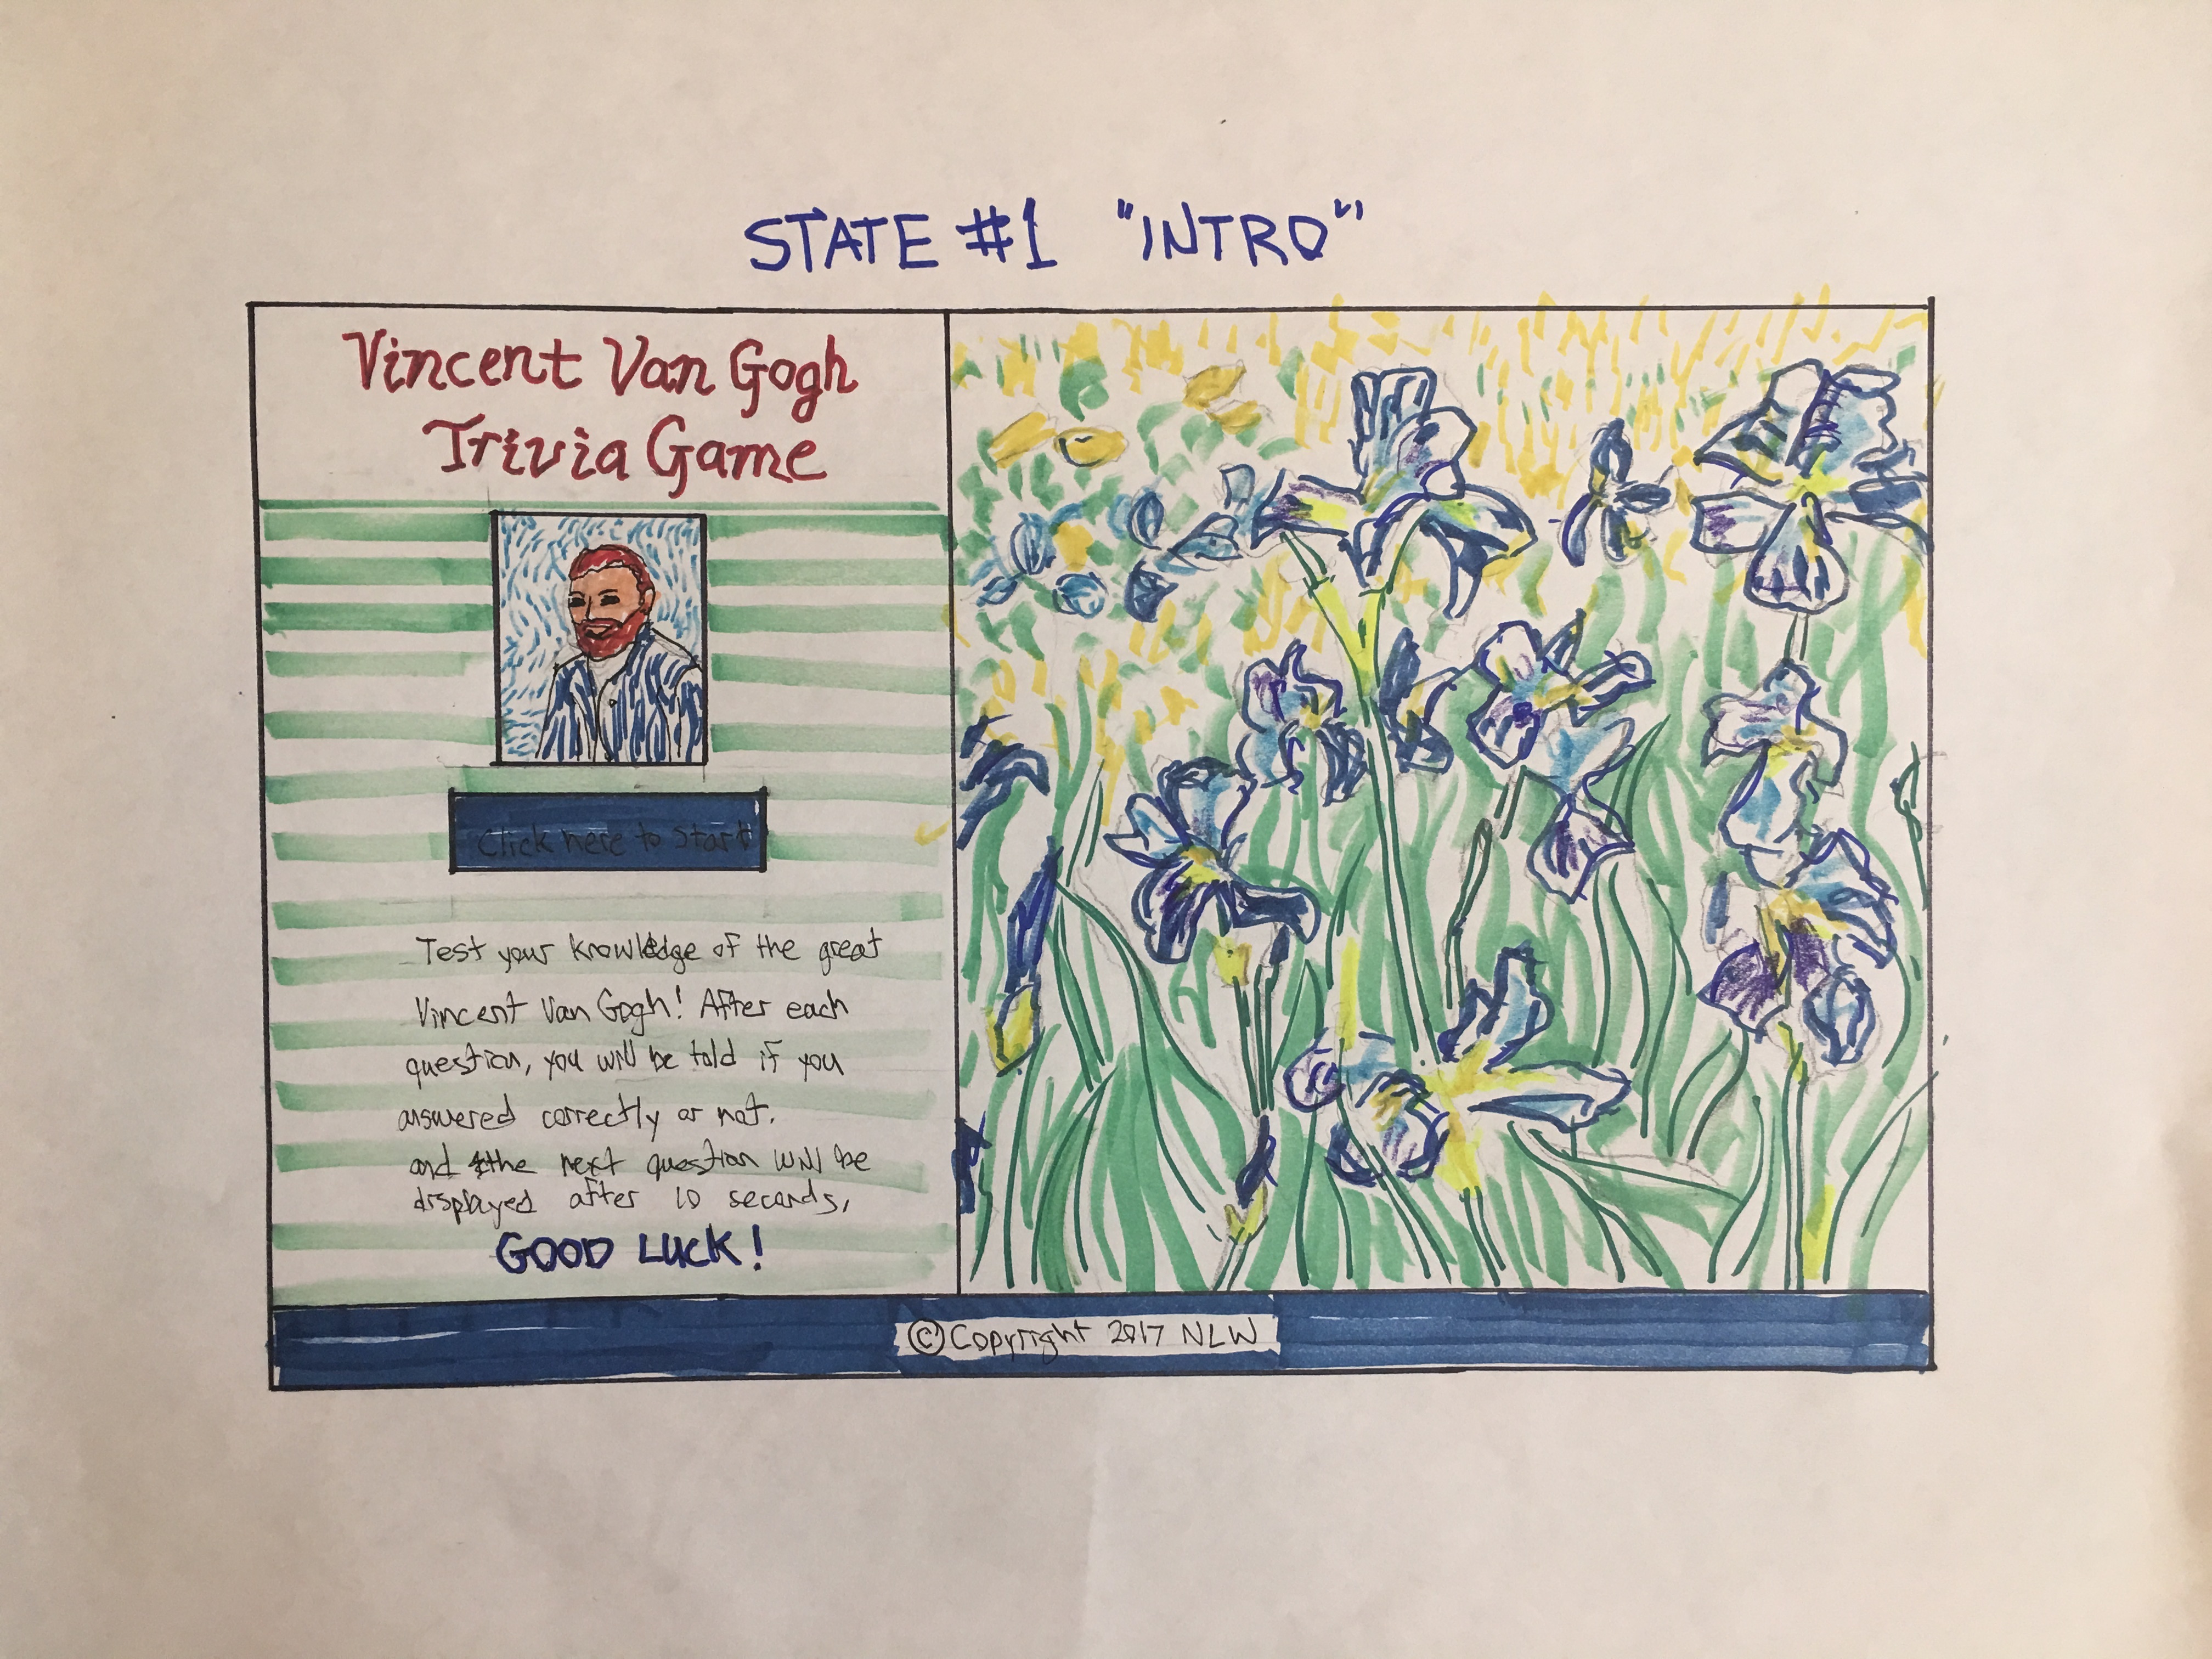 STATE #1 "INTRO"
Vincent Van Gogh
Trivia Game
Click here to Start
Test your knowledge of the great
Vincent Van Gogh! After each
question, you will be told if you
answered correctly or not.
and the next question will be
displayed after 10 seconds.
GOOD LUCK!
©Copyright 2017 NLW